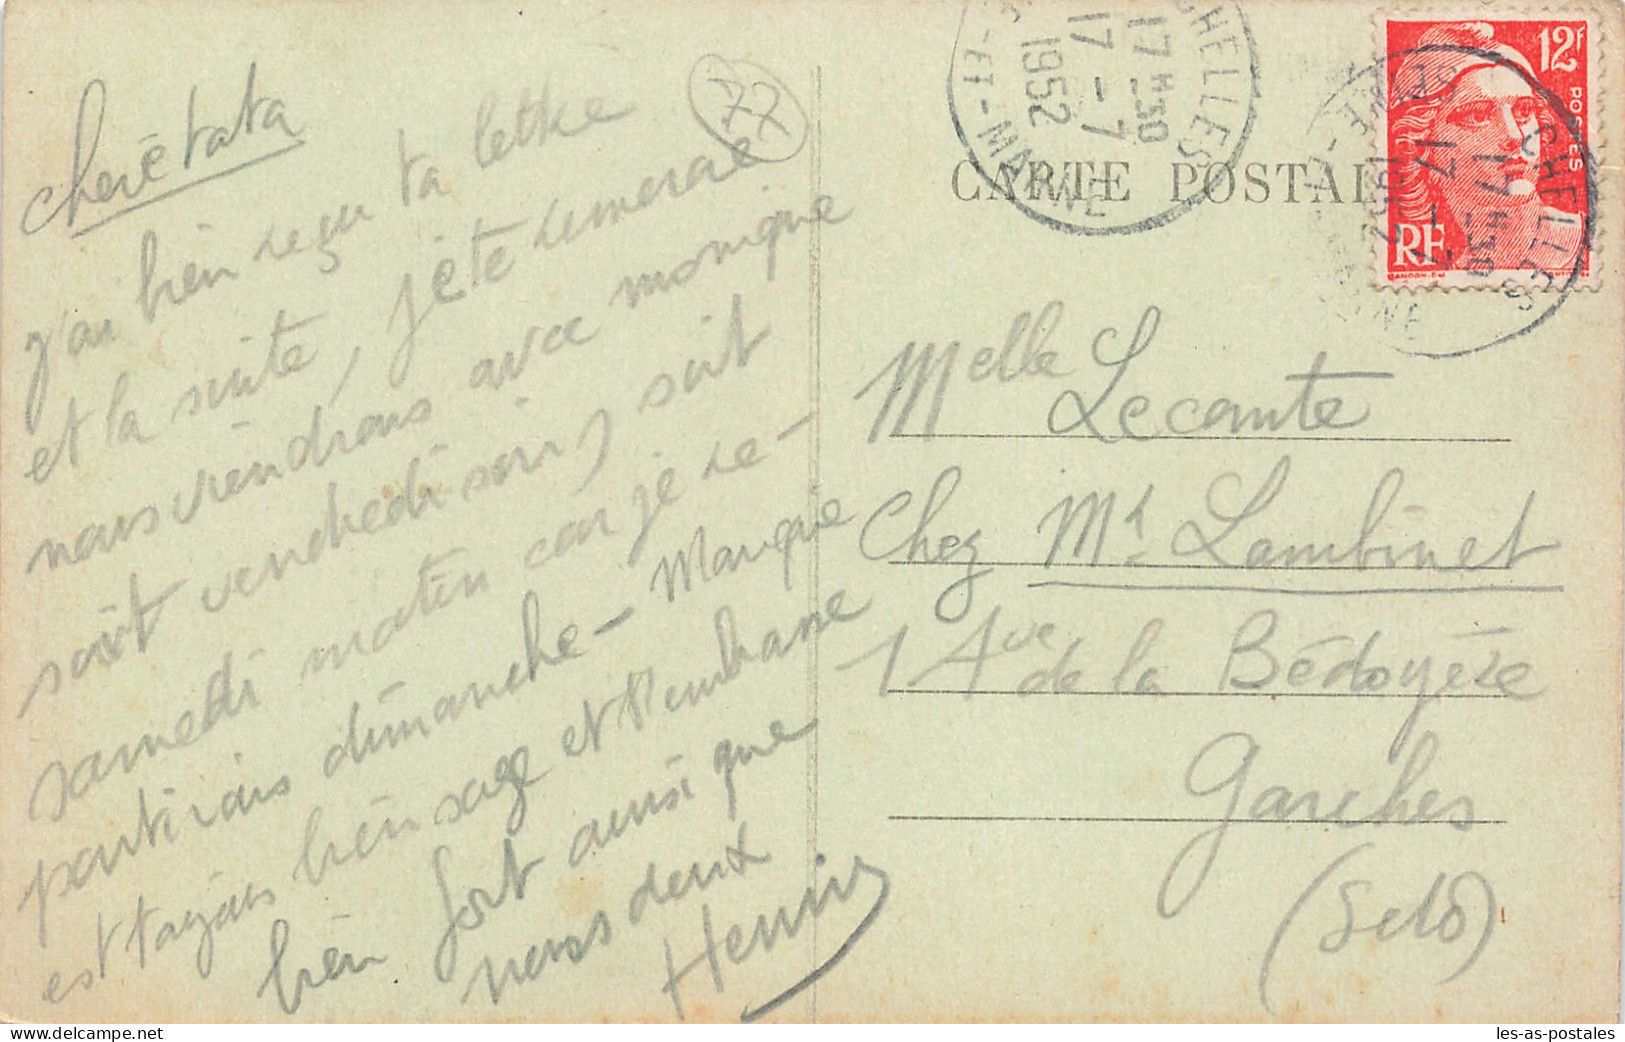 cherie tata
j'ai bien reçu ta lettre
et la suite, je te remercie
nous viendrons avec monique
soit vendredi soir, soit
samedi matin car je re-
partirais dimanche - Monique
est toujours bien sage et t'embrasse
bien fort ainsi que
nous deux
Henri
77
CHELLES
17 H 30
17 - 7
1952
-ET-MARNE
CARTE POSTALE
12F
POSTES
RF
GANDON.DEL
CHELLES
17 H 30
17 - 7
1952
Melle Lecomte
Chez Mr Lambinet
1 Ave de la Bédoyère
Garches
(S et O)
les-as-postales.com